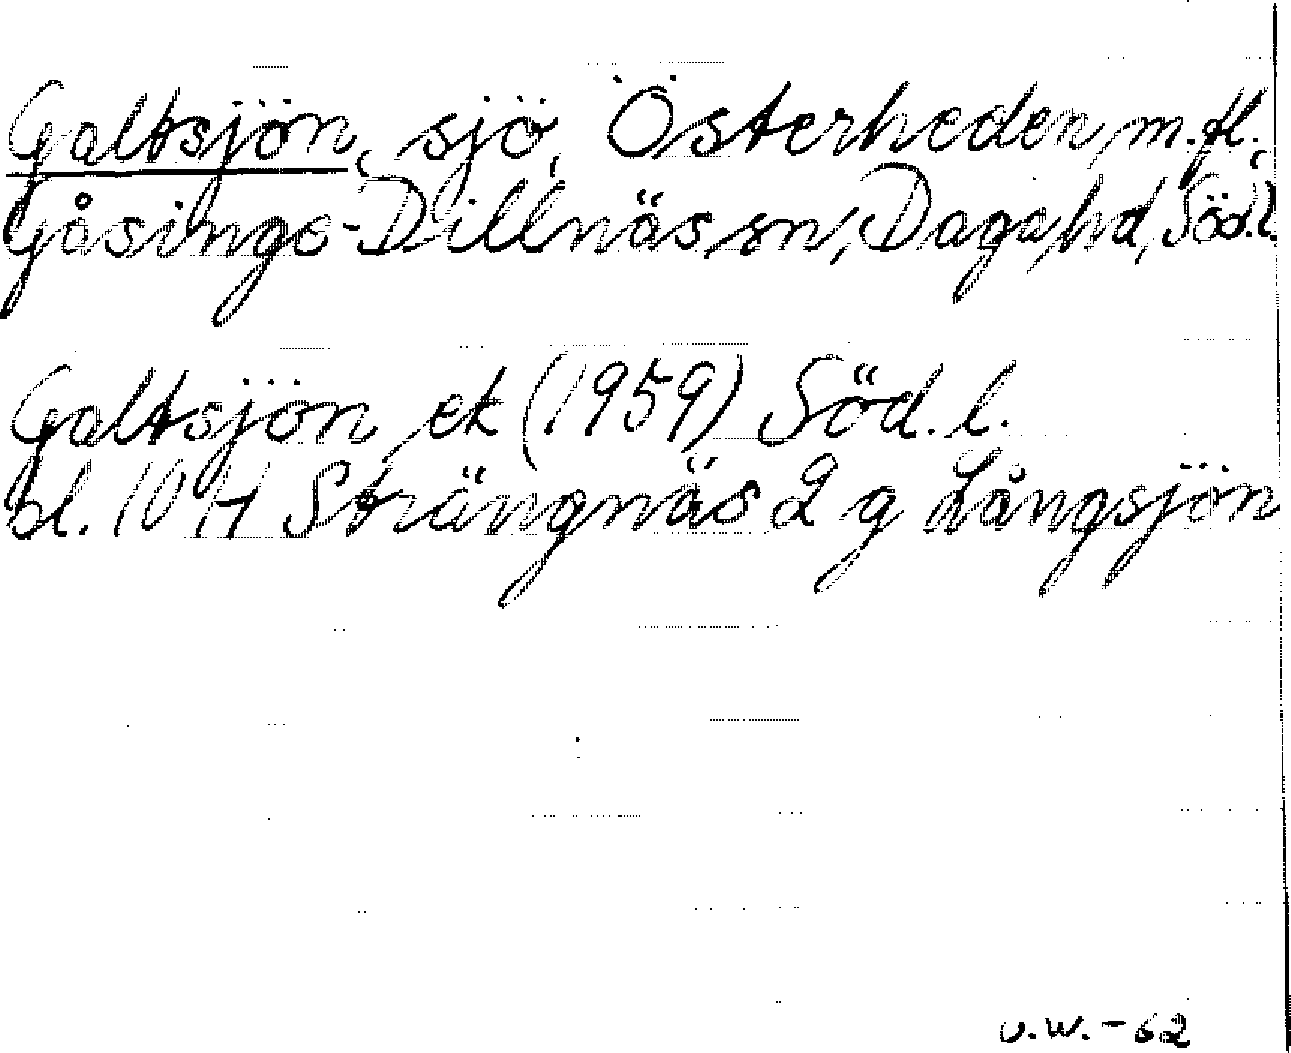 Galtsjön, sjö, Österheden m.fl.,
Gåsinge-Dillnäs sn, Daga hd, Söd.l.
Galtsjön ek (1959) Söd. l.
bl. 10 H Strängnäs 2 g Långsjön
U.W.-62